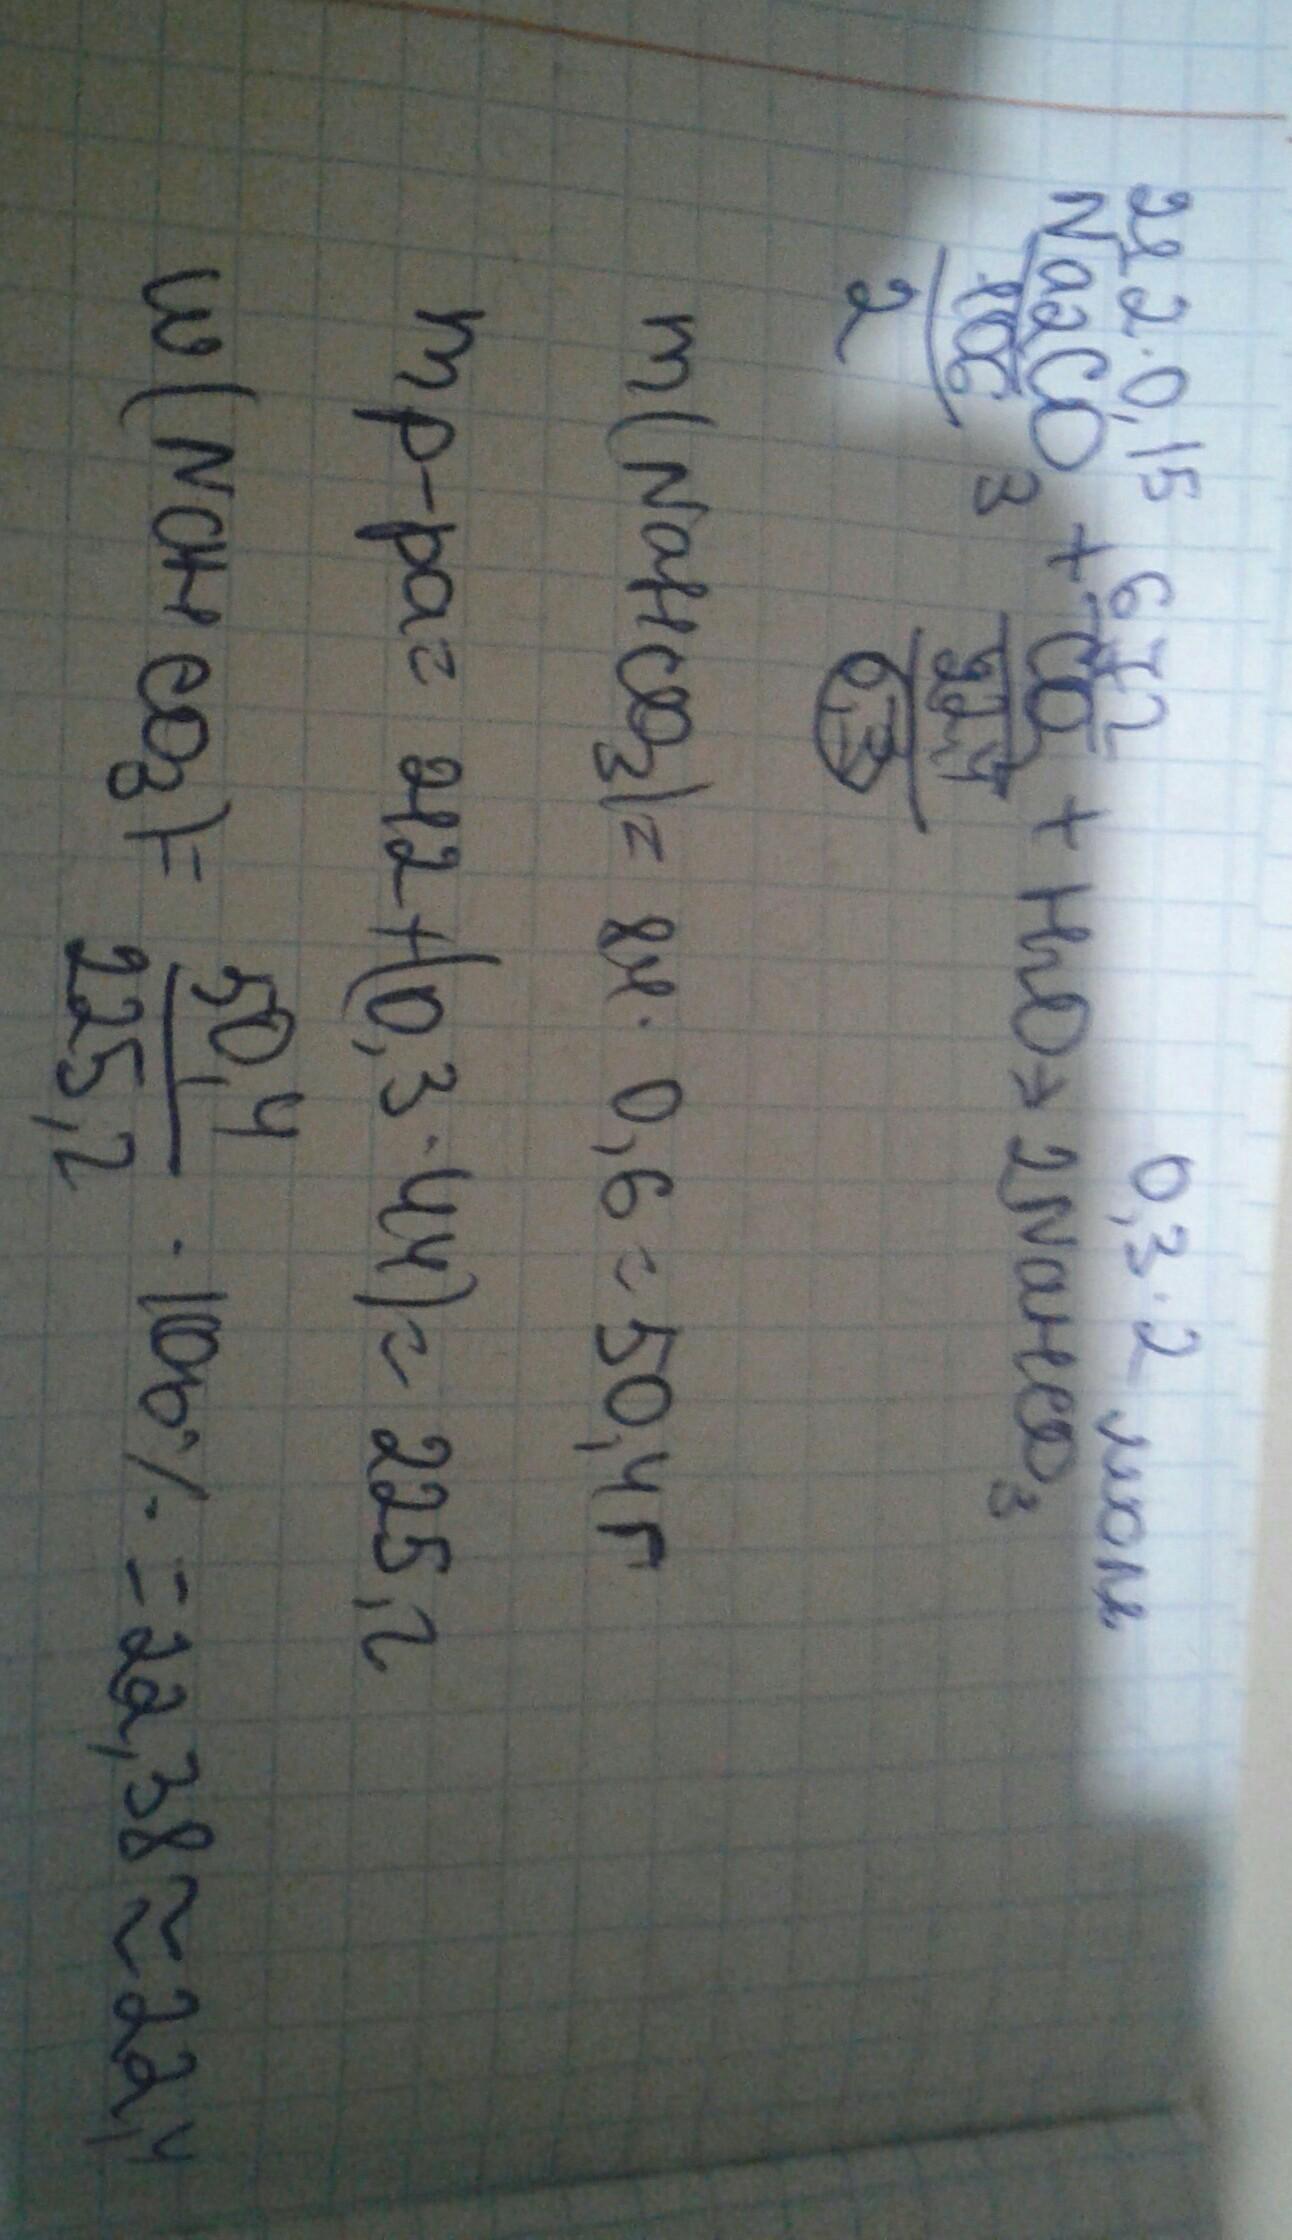 212·0,15 6,72 0,3·2 моль
Na2CO3 + CO2 + H2O → 2NaHCO3
106 22,4
2 0,3
m(NaHCO3) = 84·0,6 = 50,4г
m р-ра = 212+(0,3·44) = 225,2
w(NaHCO3) = 50,4/225,2 · 100% = 22,38 ≈ 22,4